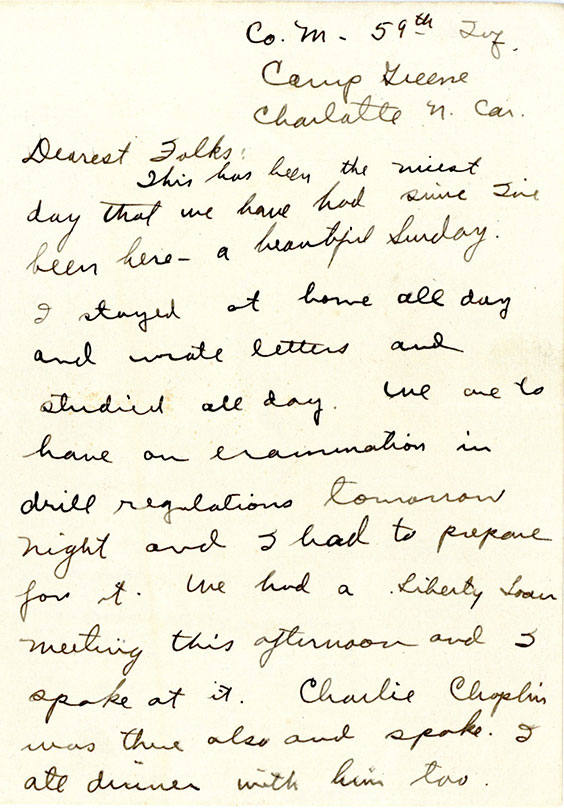 Co. M - 59th Inf.
Camp Greene
Charlotte N. Car.
Dearest Folks:
This has been the nicest
day that we have had since I've
been here - a beautiful Sunday.
I stayed at home all day
and wrote letters and
studied all day. We are to
have an examination in
drill regulations tomorrow
night and I had to prepare
for it. We had a Liberty Loan
meeting this afternoon and I
spoke at it. Charlie Chaplin
was there also and spoke. I
ate dinner with him too.